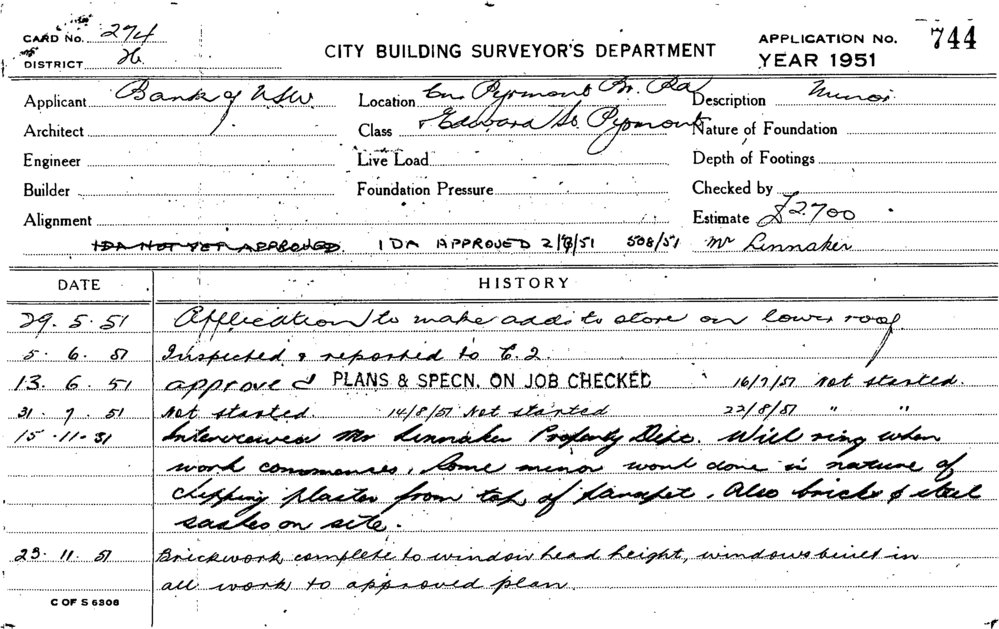 CARD No. 274
DISTRICT H.
CITY BUILDING SURVEYOR'S DEPARTMENT
APPLICATION NO. 744
YEAR 1951
Applicant Bank of NSW. Location Cnr Pyrmont Br. Rd Description Minor
Architect Class Edward St. Pyrmont Nature of Foundation
Engineer Live Load Depth of Footings
Builder Foundation Pressure Checked by
Alignment Estimate £2700
IDA NOT YET APPROVED. IDA APPROVED 2/8/51 508/51 Mr Linnaker
DATE HISTORY
29.5.51 Application to make adds to store on lower roof
5.6.51 Inspected & reported to C.2.
13.6.51 approved PLANS & SPECN. ON JOB CHECKED 16/7/51 Not started.
31.7.51 Not started. 14/8/51 Not started 22/8/51 " "
15.11.51 Interviewed Mr Linnaker Property Dept. Will ring when
work commences. Some minor work done in nature of
chipping plaster from top of parapet. Also bricks & steel
sashes on site.
23.11.51 Brickwork complete to window head height, windows built in
all work to approved plan.
C OF S 6306